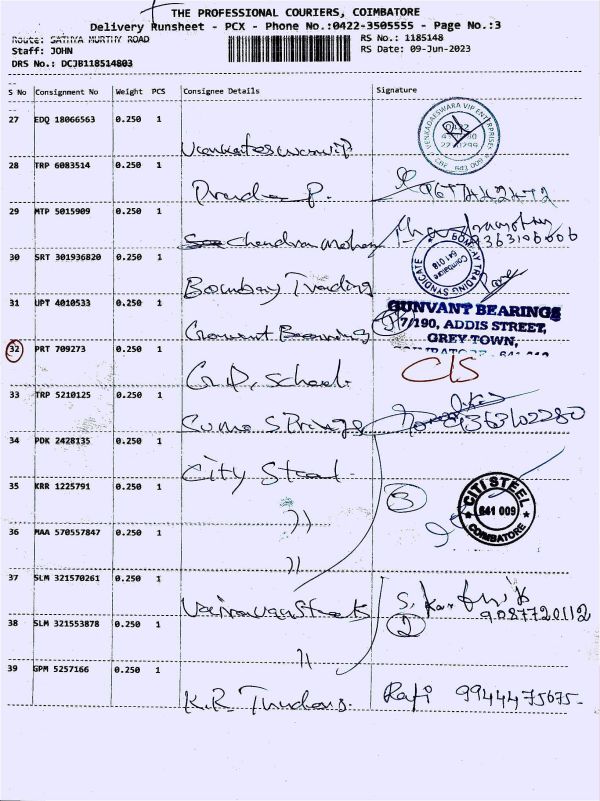 THE PROFESSIONAL COURIERS, COIMBATORE
Delivery Runsheet - PCX - Phone No.:0422-3505555 - Page No.:3
Route: SATHYA MURTHY ROAD
RS No.: 1185148
Staff: JOHN
RS Date: 09-Jun-2023
DRS No.: DCJB118514803
S No Consignment No Weight PCS Consignee Details Signature
27 EDQ 18066563 0.250 1
VENKADAESWARA VIP ENTERPRISES
0422
CBE - 641 009
28 TRP 6083514 0.250 1
P.
29 MTP 5015909 0.250 1
Chandran Mohan
9363106006
30 SRT 301936820 0.250 1
Bombay Trading
BOMBAY TRADING SYNDICATE
Coimbatore
641 018
31 UPT 4010533 0.250 1
Gunvant Bearing
GUNVANT BEARINGS
7/190, ADDIS STREET,
GREY TOWN,
COIMBATORE - 641 018
32 PRT 709273 0.250 1
G.D. School.
C/S
33 TRP 5210125 0.250 1
Cumo Springs
34 PDK 2428135 0.250 1
City Steel
35 KRR 1225791 0.250 1
))
3
CITI STEEL
641 009
COIMBATORE
36 MAA 570557847 0.250 1
))
37 SLM 321570261 0.250 1
S. Karthik
9087720112
38 SLM 321553878 0.250 1
))
2
39 GPM 5257166 0.250 1
K.R. Traders.
Rafi 9944475675-